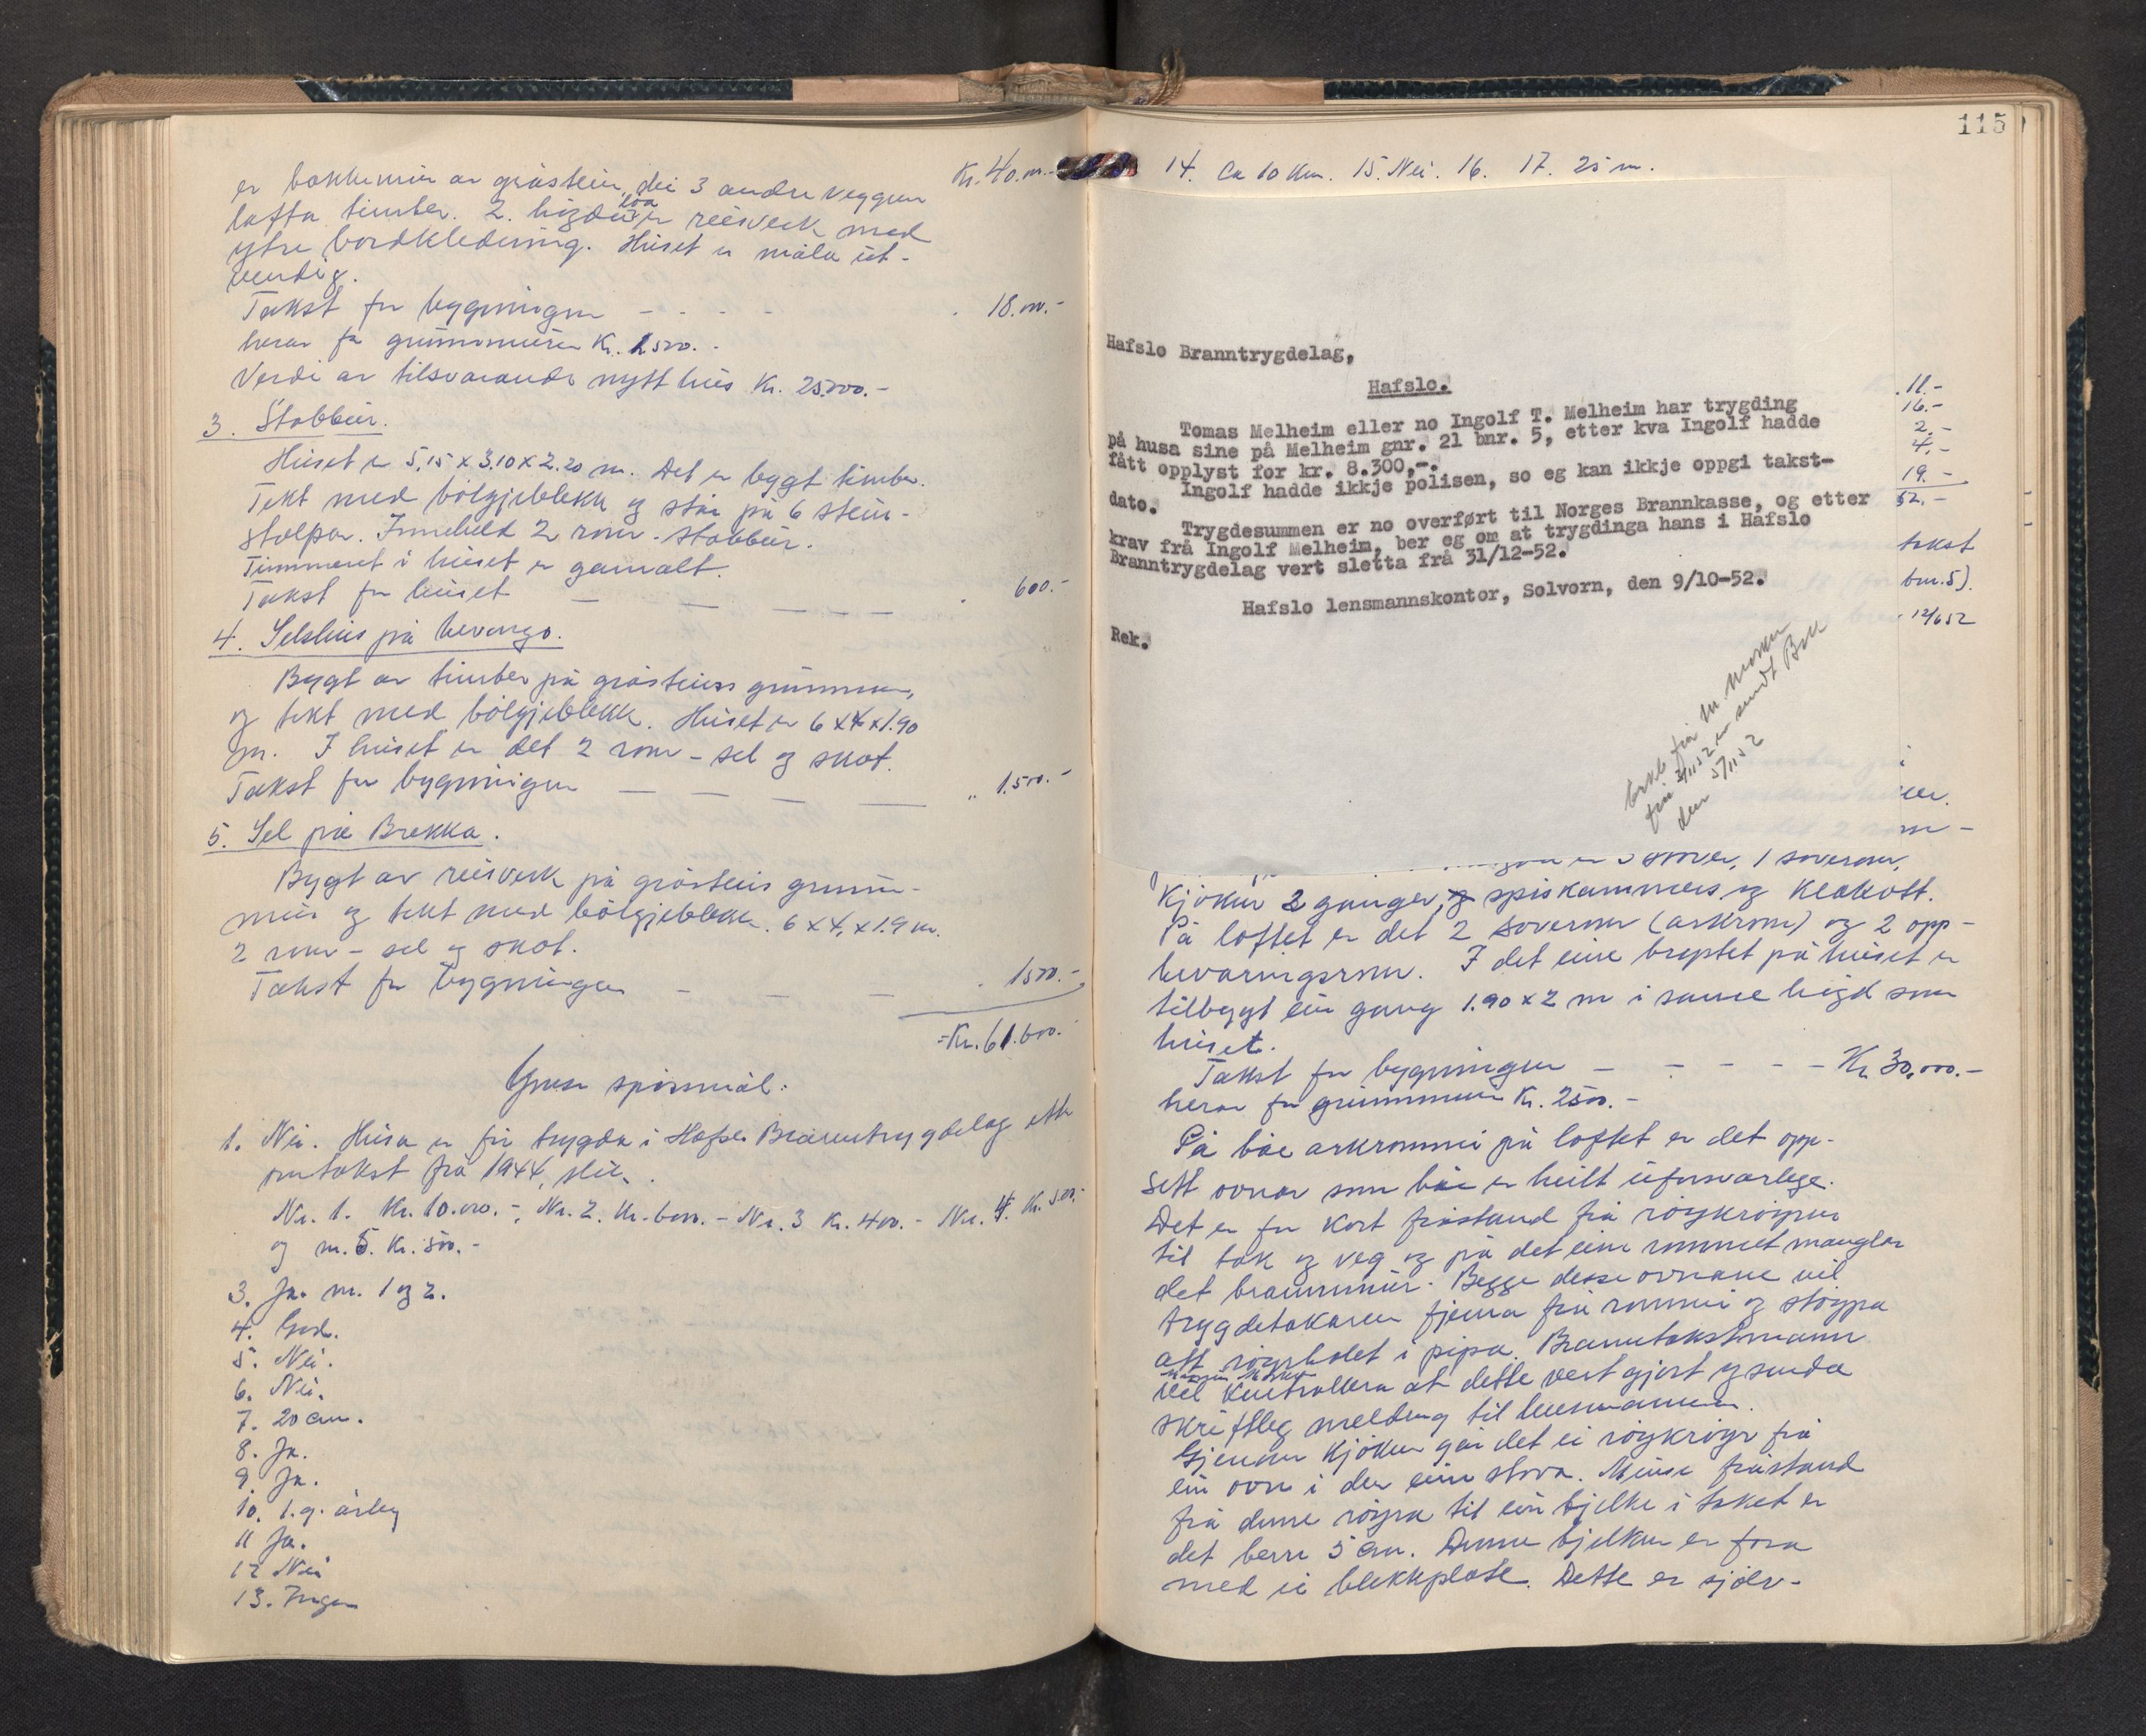 Kr. 40.000.-
er bakkemur av gråstein, dei 3 andre veggene
lafta timber. 2. högda er reisverk med
ytre bordkledning. Huset er måla ut-
vendig.
Takst for bygningen - - - - 18.000.-
herav for grunnmuren Kr. 1500.-
Verdi av tilsvarande nytt hus Kr. 25.000.-
3. Stabbur.
Huset er 5,15 x 3.10 x 2.20 m. Det er bygt timber.
Tekt med bölgjeblekk og står på 6 stein-
stolpar. Inneheld 2 rom - stabbur.
Timmeret i huset er gamalt.
Takst for huset — — — — 600.-
4. Selshus på
Bygt av timber på gråsteins grunnmur,
og tekt med bölgjeblekk. Huset er 6 x 4 x 1.90
m. I huset er det 2 rom - sel og skot.
Takst for bygningen — — — — " 1.500.-
5. Sel på Brekka.
Bygt av reisverk på gråsteins grunn-
mur og tekt med bölgjeblekk. 6 x 4 x 1.9 m.
2 rom - sel og skot.
Takst for bygningen - - - 1500.-
= Kr. 61.600.-
Ymse spörsmål:
1. Nei. Husa er för trygda i Hafslo Branntrygdelag etter
omtakst frå 1944, slik.
Nr. 1. Kr. 10.000.-, Nr. 2. Kr. 6000.- Nr. 3 Kr. 400.- Nr. 4. Kr. 500.-
og nr. 5. Kr. 500.-
3. Ja. nr. 1 og 2.
4. God.
5. Nei.
6. Nei.
7. 20 cm.
8. Ja.
9. Ja.
10. 1. g. årleg
11 Ja.
12 Nei
13. Ingen
115
14. Ca 10 km. 15. Nei. 16. 17. 25 m.
Hafslo Branntrygdelag,
Hafslo.
Tomas Melheim eller no Ingolf T. Melheim har trygding
på husa sine på Melheim gnr. 21 bnr. 5, etter kva Ingolf hadde
fått opplyst for kr. 8.300,-.
Ingolf hadde ikkje polisen, so eg kan ikkje oppgi takst-
dato.
Trygdesummen er no overført til Norges Brannkasse, og etter
krav frå Ingolf Melheim, ber eg om at trygdinga hans i Hafslo
Branntrygdelag vert sletta frå 31/12-52.
Hafslo lensmannskontor, Solvorn, den 9/10-52.
Rek.
11.-
16.-
2.-
4.-
19.-
52.-
takst
bnr. 5).
12/6 52
frå 3/11 52 er sendt
den 5/11 52
1 soverom,
Kjöken 2 ganger, spiskammers og kleskott.
På loftet er det 2 soverom (arkrom) og 2 opp-
bevaringsrom. I det eine på huset er
tilbygt ein gang 1.90 x 2 m i same högd som
huset.
Takst for bygningen - - - - - Kr. 30.000.-
herav for grunnmuren Kr. 2500.-
På båe arkrommi på loftet er det opp-
sett ovnar som båe er heilt uforsvarlege.
Det er for kort fråstand frå röykröyrer
til tak og veg og på det eine rommet manglar
det brannmur. Begge desse ovnane vil
trygdetakaren fjerna frå rommi og stöypa
att röyrholet i pipa. Branntakstmann
vil kontrollera at dette vert gjort og senda
skriftleg melding til lensmannen.
Gjenom kjöken går det ei röykröyr frå
ein ovn i den eine stova. Minste fråstand
frå denne röyra til ein bjelke i taket er
det berre 5 cm. Denne bjelken er fora
med ei blekkplate. Dette er sjölv-